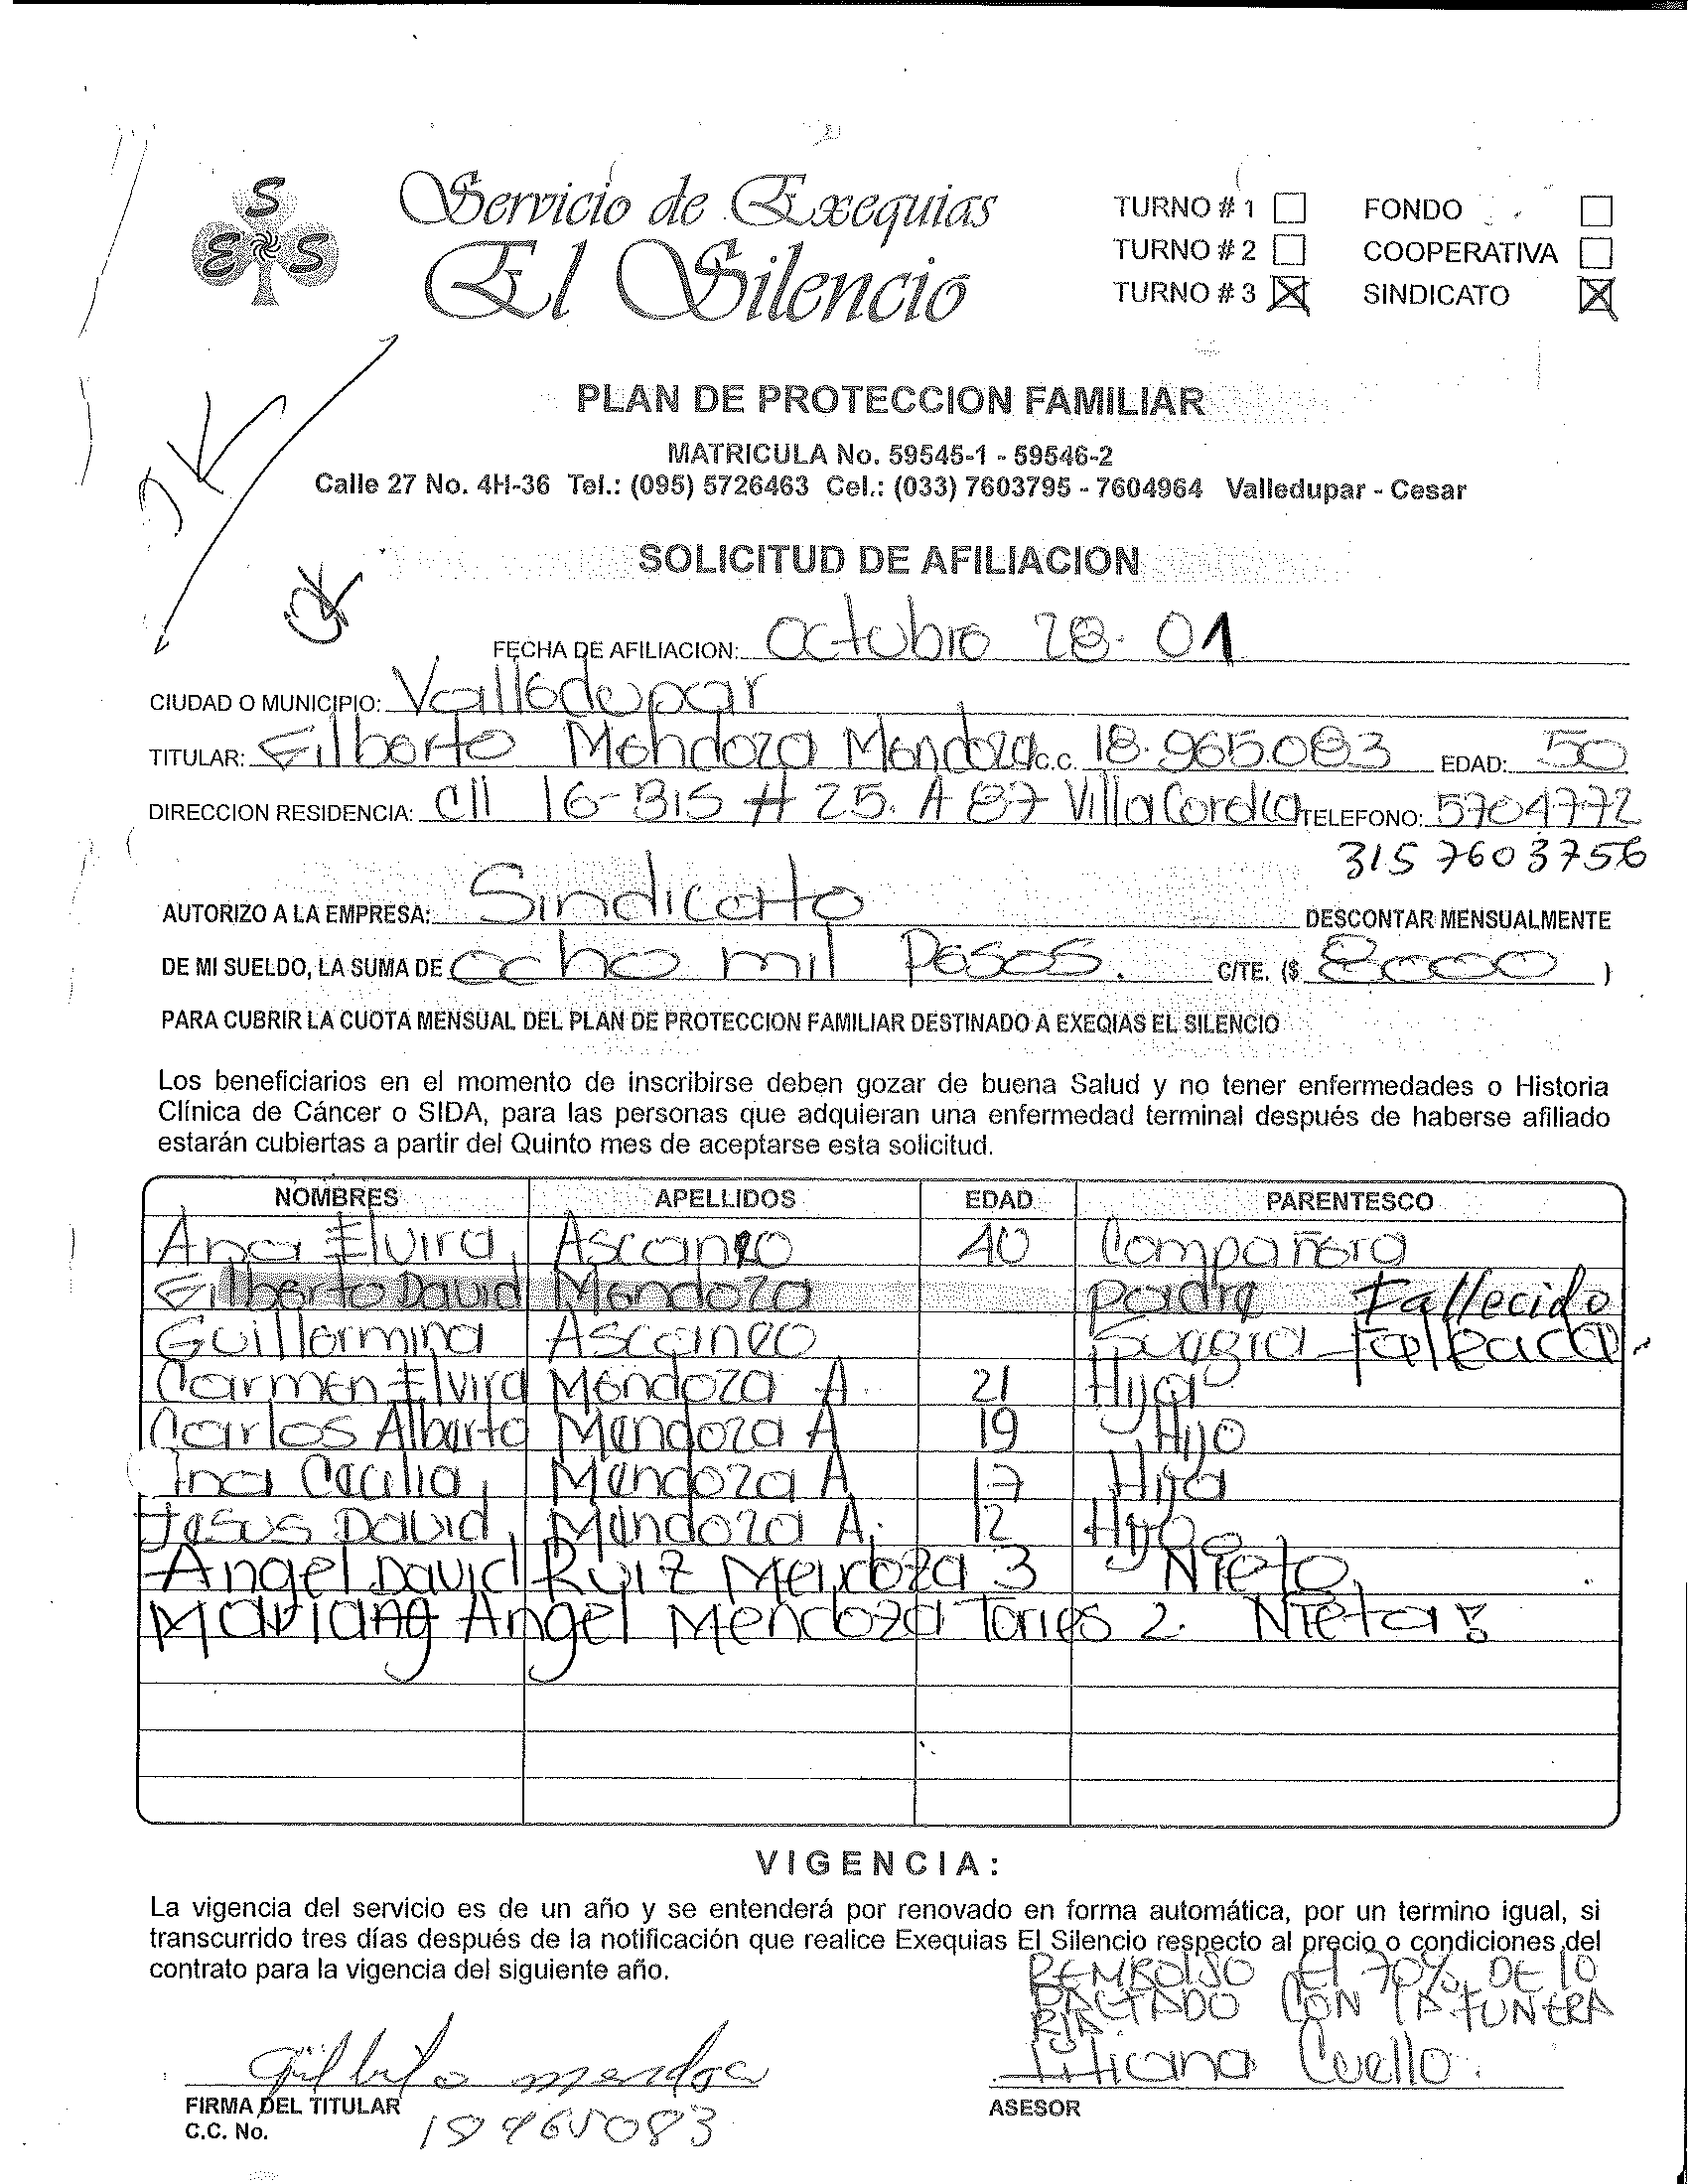 Servicio de Exequias
El Silencio
S E S
TURNO # 1 FONDO
TURNO # 2 COOPERATIVA
TURNO # 3 X SINDICATO X
PLAN DE PROTECCION FAMILIAR
MATRICULA No. 59545-1 - 59546-2
Calle 27 No. 4H-36 Tel.: (095) 5726463 Cel.: (033) 7603795 - 7604964 Valledupar - Cesar
OK
SOLICITUD DE AFILIACION
OK
FECHA DE AFILIACION: Octubre 28. 01
CIUDAD O MUNICIPIO: Valledupar
TITULAR: Gilberto Mendoza Mendoza C.C. 18.965.083 EDAD: 50
DIRECCION RESIDENCIA: Cll 16-BIS # 25. A 87 Villa Corelca TELEFONO: 5704772
315 7603756
AUTORIZO A LA EMPRESA: Sindicato DESCONTAR MENSUALMENTE
DE MI SUELDO, LA SUMA DE Ocho mil Pesos. C/TE. ($ 8000 )
PARA CUBRIR LA CUOTA MENSUAL DEL PLAN DE PROTECCION FAMILIAR DESTINADO A EXEQIAS EL SILENCIO
Los beneficiarios en el momento de inscribirse deben gozar de buena Salud y no tener enfermedades o Historia
Clínica de Cáncer o SIDA, para las personas que adquieran una enfermedad terminal después de haberse afiliado
estarán cubiertas a partir del Quinto mes de aceptarse esta solicitud.
NOMBRES APELLIDOS EDAD PARENTESCO
Ana Elvira Ascaneo 40 Compañera
Gilberto David Mendoza Padre Fallecido
Guillermina Ascaneo Suegra
Carmen Elvira Mendoza A. 21 Hija
Carlos Alberto Mendoza A 19 Hijo
Ina Cecilia Mendoza A 17 Hija
Jesus David Mendoza A. 12 Hijo
Angel David Ruiz Mendoza 3 Nieto
Mariang Angel Mendoza Torres 2. Nieta
VIGENCIA:
La vigencia del servicio es de un año y se entenderá por renovado en forma automática, por un termino igual, si
transcurrido tres días después de la notificación que realice Exequias El Silencio respecto al precio o condiciones del
contrato para la vigencia del siguiente año.
REMBOLSO El 70% DE lo
PACTADO CON LA FUNERA
RIA
Gilberto mendoza Liliana Cuello.
FIRMA DEL TITULAR ASESOR
C.C. No. 18965083